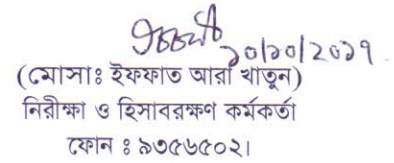 ১০/১০/২০১৭
(মোসাঃ ইফফাত আরা খাতুন)
নিরীক্ষা ও হিসাবরক্ষণ কর্মকর্তা
ফোন ঃ ৯৩৫৬৫০২।